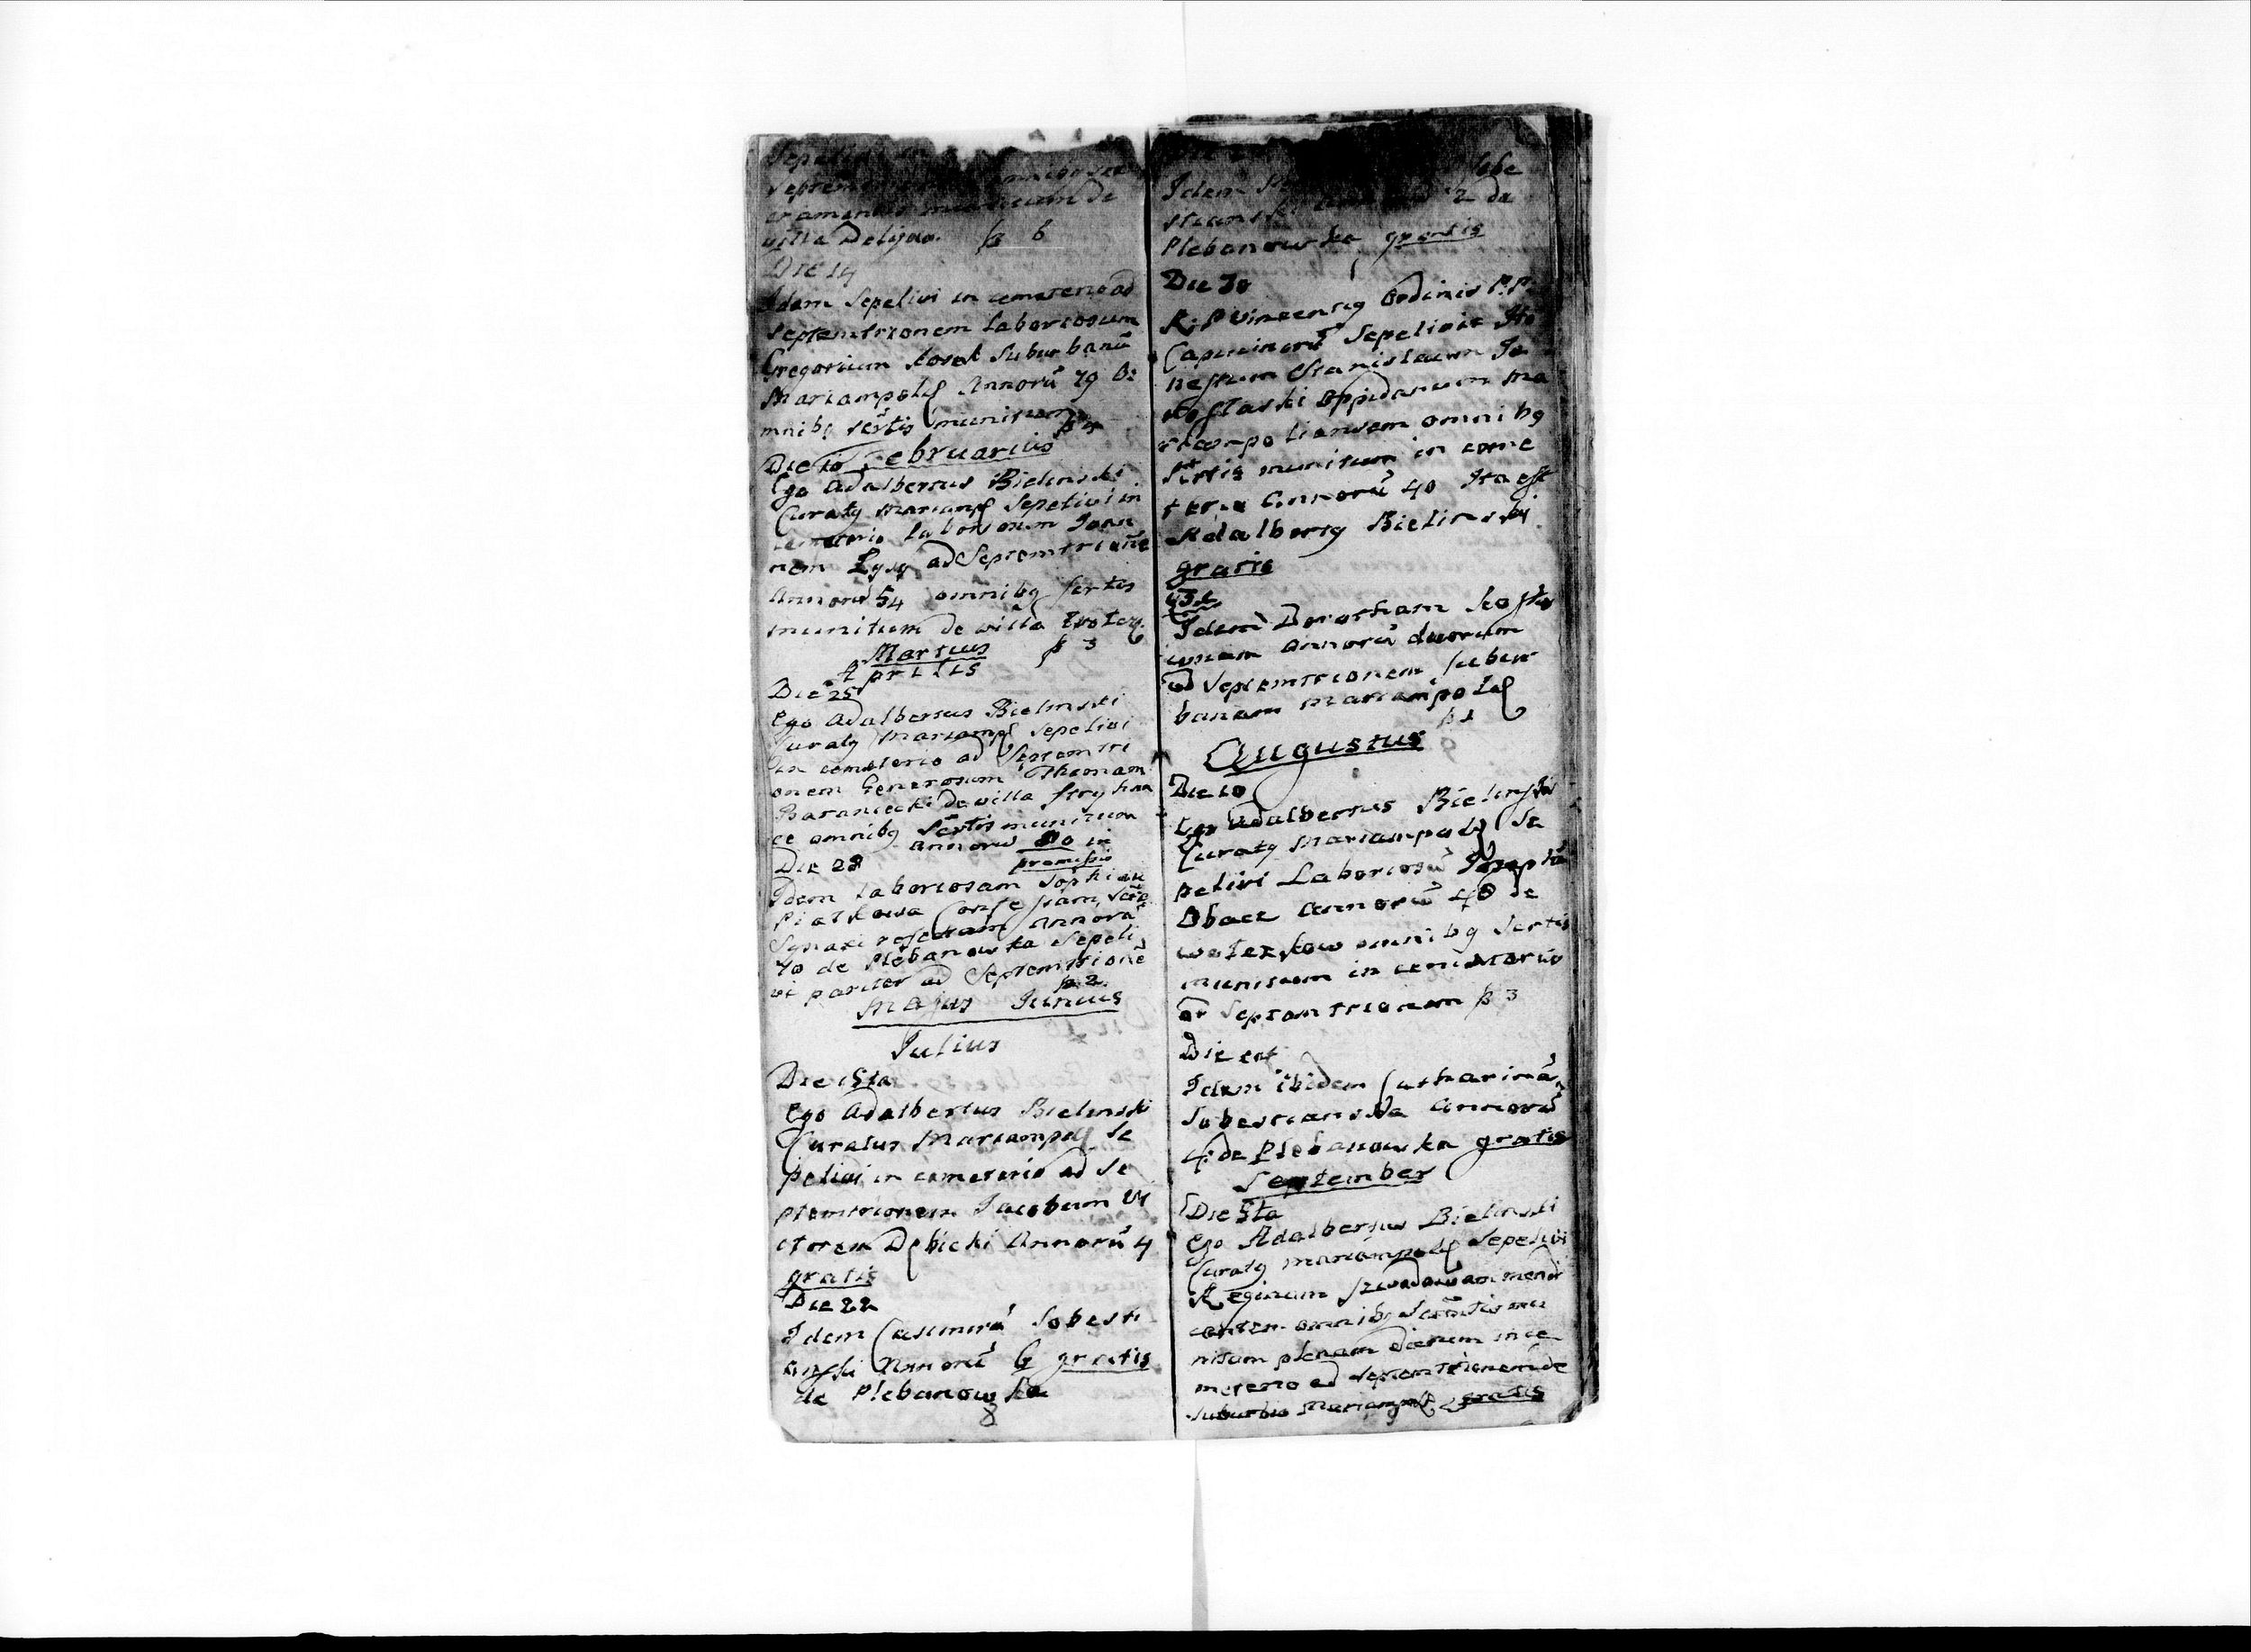 Sepelivi
Septem omnibus sa
cramentis munitum de
villa Delijow. fl 6
Die 14
Idem Sepelivi in cemeterio ad
Septemtrionem Laboriosum
Gregorium Kosel Suburbanū
Mariampol Annorū 79 o
mnibq scrtis munitum fl 4
Die 10 Februarius
Ego Adalbertus Bielinski
Curatq Mariamp Sepelivi in
cemeterio Laboriosum Joan
nem Lysy ad Septemtrionē
Annorū 54 omnibq scrtis
munitum de villa
fl 3
Martius
Aprilis
Die 25
Ego Adalbertus Bielinski
Curatq Mariamp Sepelivi
in cemeterio ad Septemtri
onem Generosum Thomam
Baraniecki De villa
ce omnibq scrtis munitum
annorū 80 in
Die 28 promissis
Idem Laboriosam Sophiam
Piatkowa Confessam, sacra
Synaxi refectam Annorū
40 de Plebanowka Sepeli
vi pariter ad Septemtrionē
fl 2
Majus Junius
Julius
Die 5ta
Ego Adalbertus Bielinski
Curatus Mariampol Se
pelivi in cemeterio ad Se
ptemtrionem Jacobum Vi
ctorem Dębicki Annorū 4
gratis
Die 22
Idem Casimirū Sobesti
ański Annorū 6 gratis
de Plebanowka
8
Idem Sobe
stians 2 de
Plebanowka gratis
Die 30
R. P. Vincentiq Ordinis P. P.
Capucinorū Sepelivit Ho
nestum Stanislaum
oppidanum Ma
riampoliensem omnibq
scrtis munitum in ceme
terio Annorū 40 Ita est
Adalbertq Bielinski
gratis
Idem Dorotheam
annorū duorum
ad Septemtrionem Subur
banam Mariampol
fl 1
Augustus
Die 10
Ego Adalbertus Bielinski
Curatq Mariampol Se
pelivi Laboriosū Josephū
Obacz Annorū 40 de
Wolczkow omnibq scrtis
munitum in cemeterio
ad Septemtrionem fl 3
Die eat
Idem ibidem Catharinā
Sobestianska Annorū
4 de Plebanowka gratis
September
Die 5ta
Ego Adalbertus Bielinski
Curatq Mariampol Sepelivi
Reginam mendi
cantem omnibq Scramtis mu
nitam plenam dierum in ce
meterio ad Septemtrionem de
Suburbio Mariampol gratis